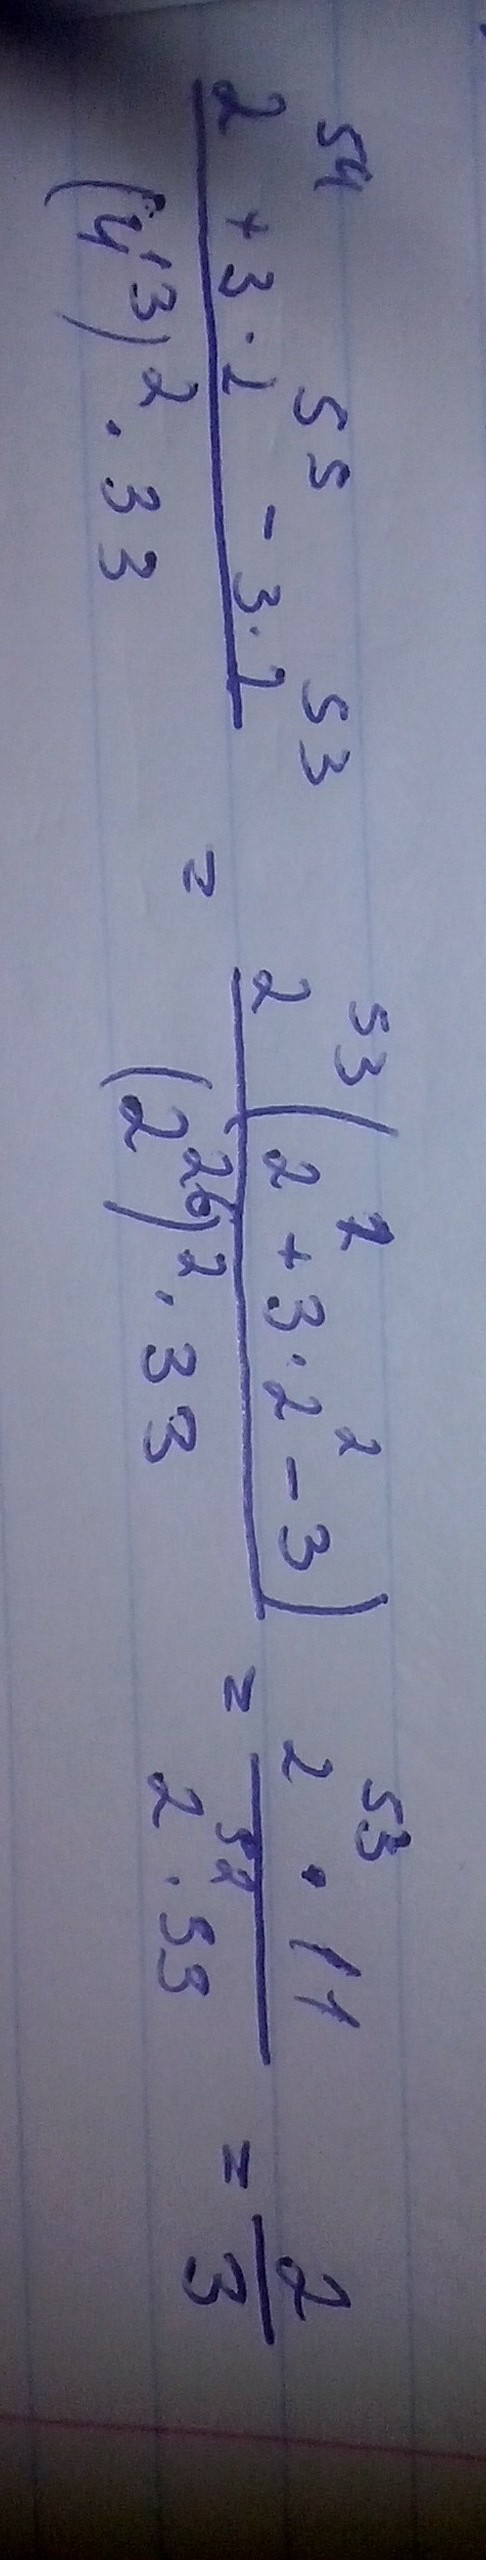 \frac{2^{54} + 3 \cdot 2^{55} - 3 \cdot 2^{53}}{(4^{13})^2 \cdot 33} = \frac{2^{53}(2 + 3 \cdot 2^2 - 3)}{(2^{26})^2 \cdot 33} = \frac{2^{53} \cdot 11}{2^{52} \cdot 33} = \frac{2}{3}